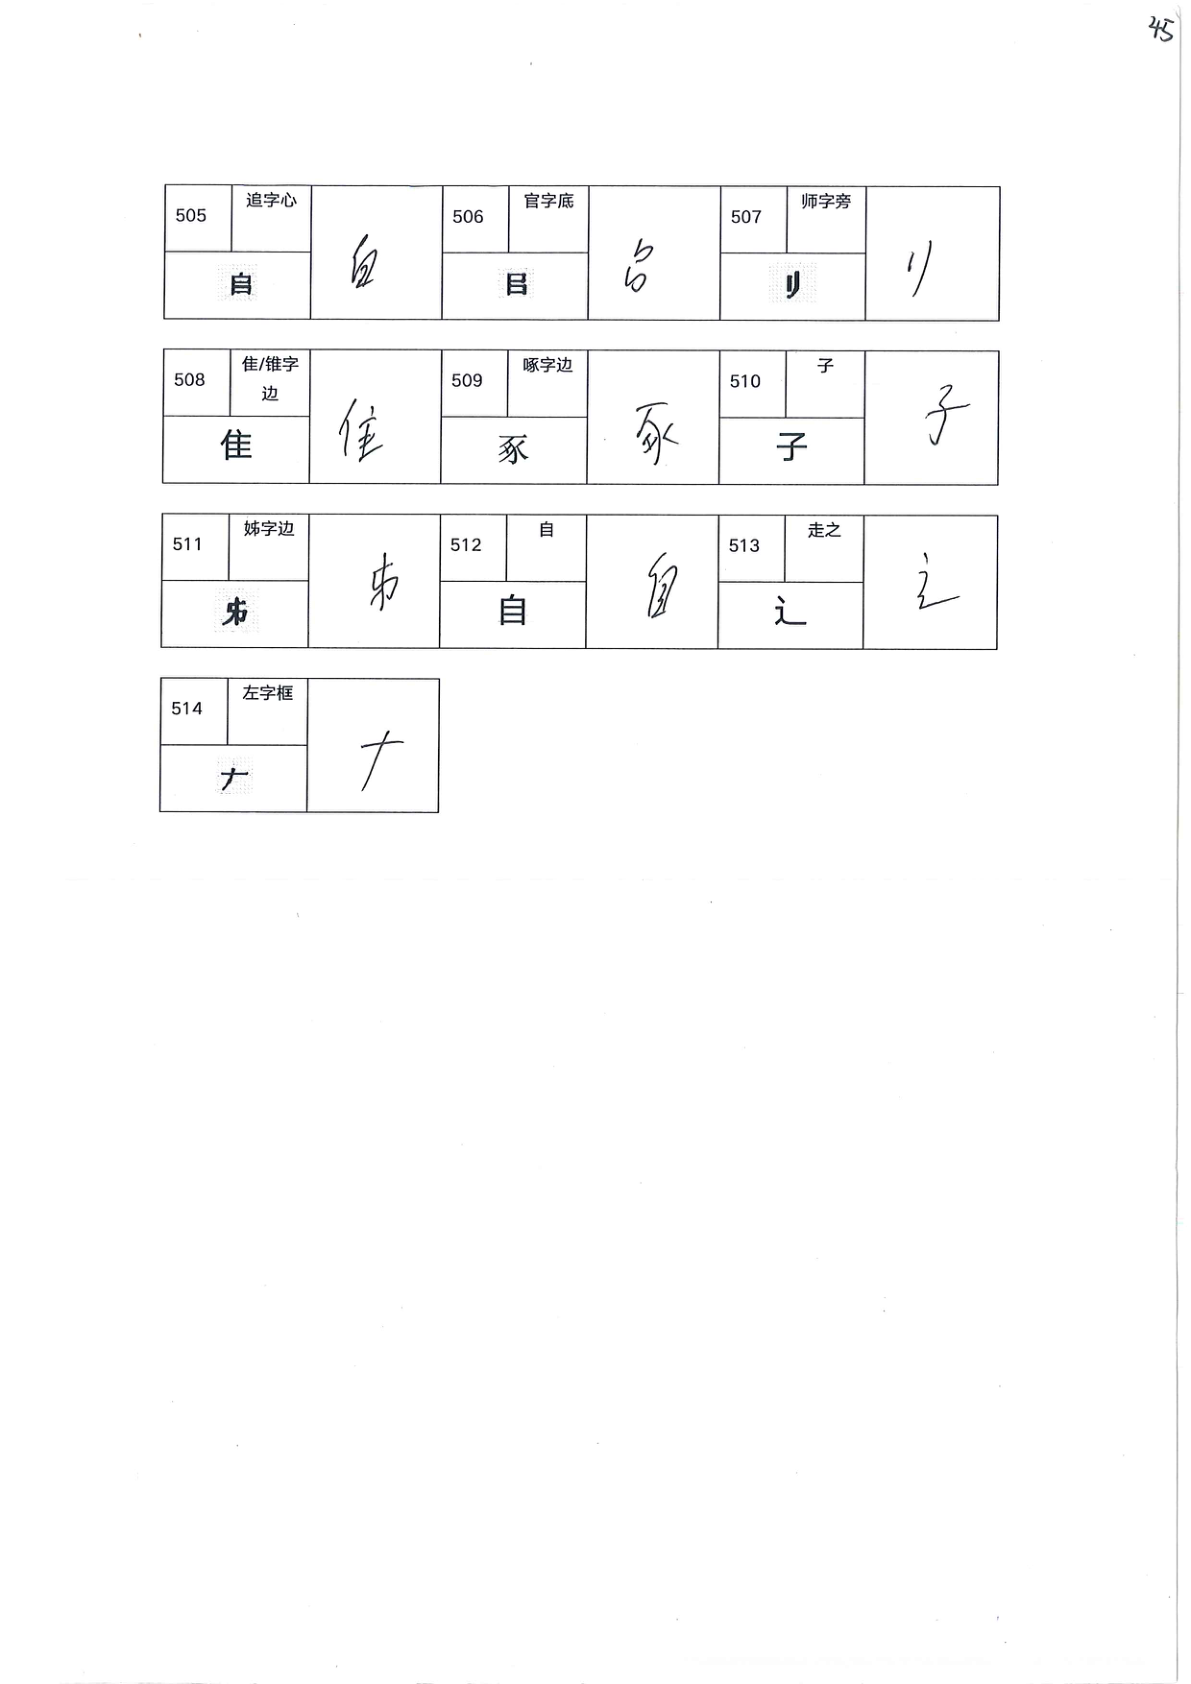 45
505 追字心 𠂤 𠂤
506 官字底 㠯 㠯
507 师字旁 刂 刂
508 隹/锥字边 隹 隹
509 啄字边 豖 豖
510 子 子 子
511 姊字边 𠂔 𠂔
512 自 自 自
513 走之 辶 辶
514 左字框 𠂇 𠂇